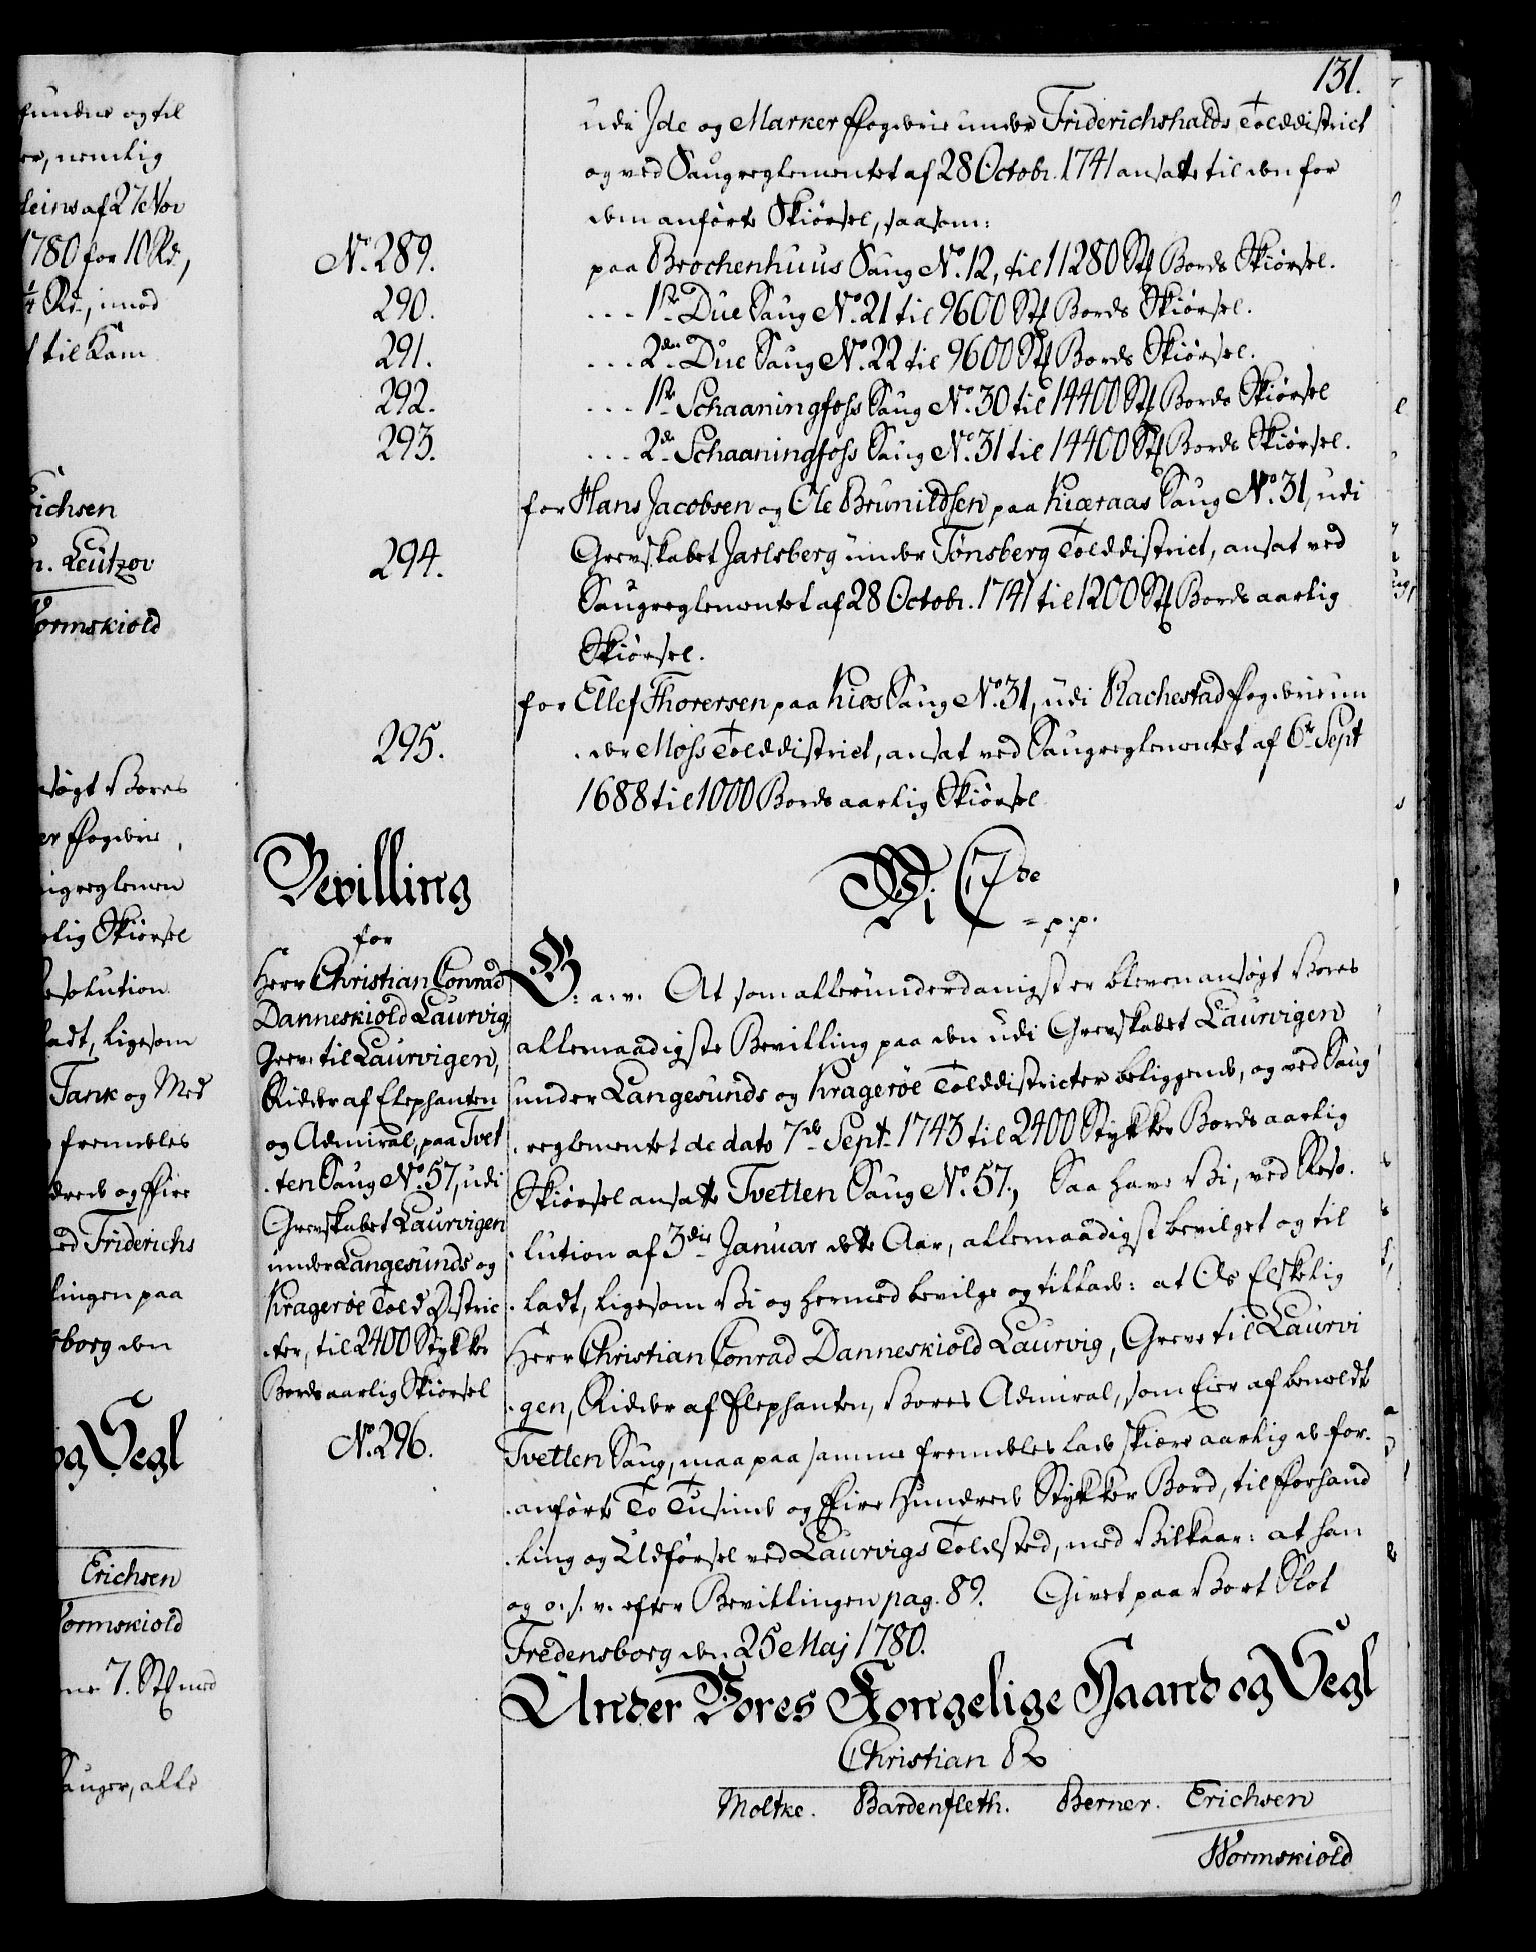 131.
udi Ide og Marker Fogderie under Friderichshalds Tolddistrict
og ved Saugreglementet af 28 Octobr. 1741 ansatte til den for
dem anførte Skiørsel, saasom:
No. 289. paa Brochenhuus Saug No. 12, til 11280 St. Bords Skiørsel.
290. ... 1ste Due Saug No. 21 til 9600 St. Bords Skiørsel.
291. ... 2den Due Saug No. 22 til 9600 St. Bords Skiørsel.
292. ... 1ste Schaaningfoss Saug No. 30 til 14400 St. Bords Skiørsel
293. ... 2de Schaaningfoss Saug No. 31 til 14400 St. Bords Skiørsel.
for Hans Jacobsen og Ole Brunildsen paa Kiæraas Saug No. 31, udi
294. Grevskabet Jarlsberg under Tønsberg Tolddistrict, ansat ved
Saugreglementet af 28 Octobr. 1741 til 1200 St. Bords aarlig
Skiørsel.
for Ellef Thorersen paa Kiøs Saug No. 31, udi Rachestad Fogderie un
295. der Moss Tolddistrict, ansat ved Saugreglementet af 6te Sept
1688 til 1000 Bords aarlig Skiørsel
Bevilling
for
Herr Christian Conrad
Danneskiold Laurvig,
Greve til Laurvigen,
Ridder af Elephanten
og Admiral, paa Tvet
ten Saug No. 57, udi
Grevskabet Laurvigen
under Langesunds og
Kragerøe Told Distric
ter, til 2400 Stykker
Bords aarlig Skiørsel
No. 296.
Vi C 7de
= p.p.
G. a. v. At som allerunderdanigst er bleven ansøgt Vores
allernaadigste Bevilling paa den udi Grevskabet Laurvigen
under Langesunds og Kragerøe Tolddistricter beliggende, og ved Saug
reglementet de dato 7de Sept. 1743 til 2400 Stykker Bords aarlig
Skiørsel ansatte Tvetten Saug No. 57., Saa have Vi, ved Reso
lution af 3die Januar dette Aar, allernaadigst bevilget og til
ladt, ligesom Vi og hermed bevilge og tillade: at Os Elskelig
Herr Christian Conrad Danneskiold Laurvig, Greve til Laurvi
gen, Ridder af Elephanten, Vores Admiral, som Eier af bemeldte
Tvetten Saug, maa paa samme fremdeles lade skiære aarlig de for
anførte To Tusind og Fire Hundrede Stykker Bord, til Forhand
ling og Udførsel ved Laurvigs Toldsted, med Vilkaar: at han
og o. s. v. efter Bevillingen pag. 89. Givet paa Vort Slot
Fredensborg den 25 Maj 1780.
Under Vores Kongelige Haand og Segl
Christian R
Moltke. Bardenfleth. Berner. Erichsen
Wormskiold